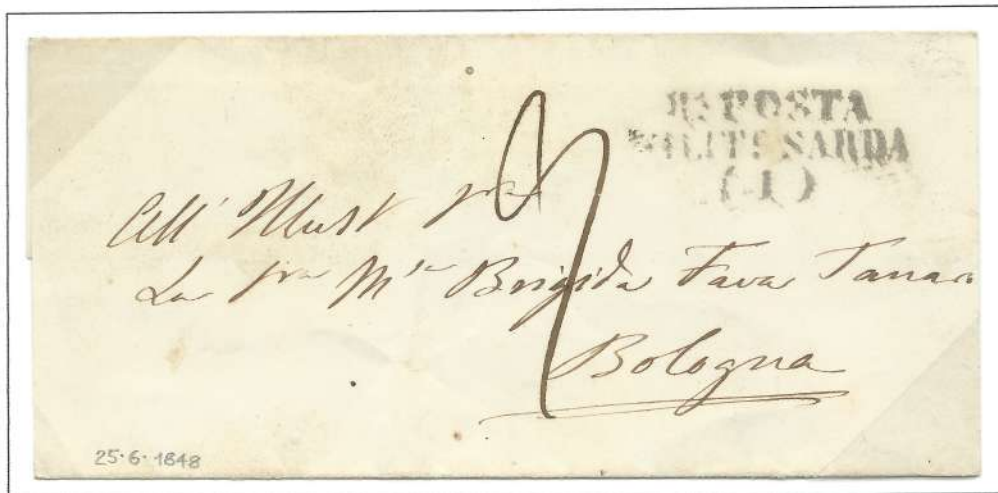 Rᵃ POSTA
MILITᴱ SARDA
(4)
All' Illust Sra
La Sra Msa Brigida Fava Tanari
Bologna
25·6·1848